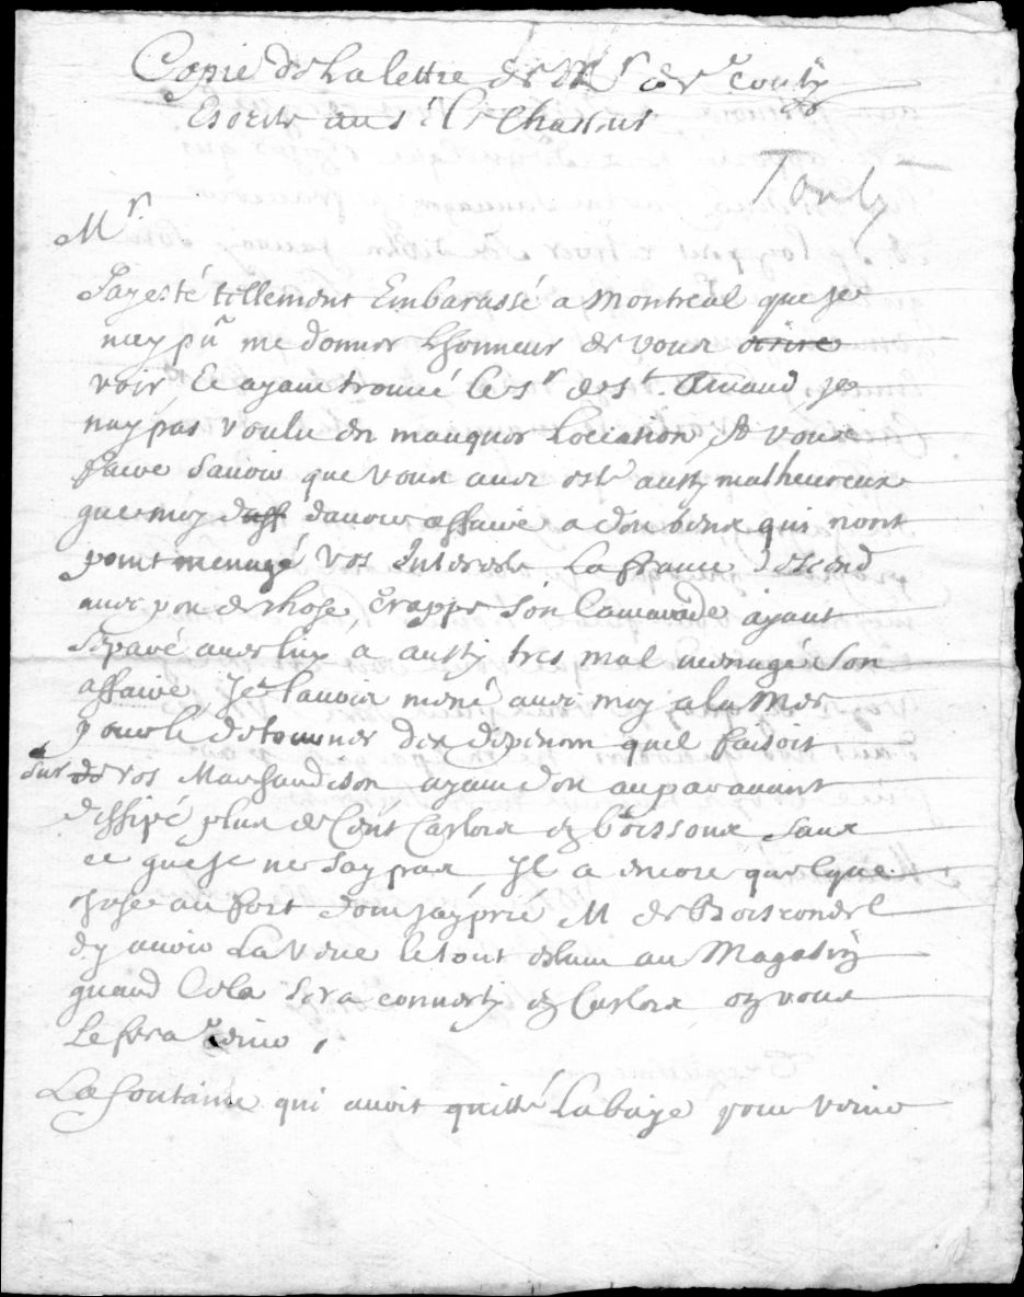 Copie de La lettre de Mr de Tonty
Escrite au sr Le Chasseur
Tonty
Mr
Jay esté tellement Embarassé a Montreal que je
nay pû me donner Lhonneur de vous ecrire
voir, Et ayant trouué le sr de st. Amand, je
nay pas voulu en manquer Locca͏sion, Et vous
faire sauoir que vous auez esté aussy malheureux
que moy daff dauoir affaire a des gens qui nont
point menagé vos Interests La france descend
auec peu de chose, Erappe son Camarade ayant
Separé auec luy a aussy tres mal menagé Son
affaire, Je lauois mené auec moy a la Mer
pour le détourner des depences quil faisoit
Sur de vos Marchandises ayant deu auparauant
dissipé plus de Cent Castors en boissons sans
ce que je ne say pas, Il a encore quelque
chose au fort dont jay prié M de Boisrondel
dy auoir La Vëue le tout estant au Magasin
quand Cela sera conuerty en Castors on vous
Le fera tenir,
La fontaine qui auoit quitté La baye pour venir